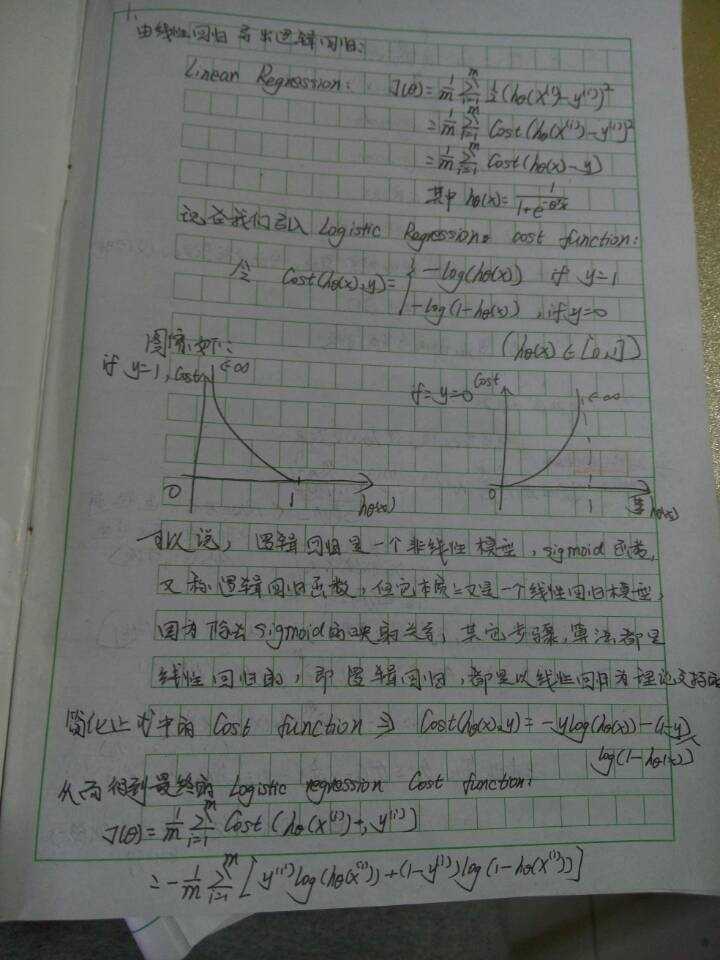 1.
由线性回归导出逻辑回归:
Linear Regression: J(θ)=1/m Σ_{i=1}^{m} 1/2 (hθ(x⁽ⁱ⁾)-y⁽ⁱ⁾)²
=1/m Σ_{i=1}^{m} Cost(hθ(x⁽ⁱ⁾)-y⁽ⁱ⁾)²
=1/m Σ_{i=1}^{m} Cost(hθ(x)-y)
其中 hθ(x)=1/(1+e^{-θᵀx})
现在我们引入 Logistic Regression: cost function:
令 Cost(hθ(x),y)={ -log(hθ(x)) if y=1
-log(1-hθ(x)), if y=0
(hθ(x)∈[0,1])
图像如下:
if y=1, Cost ←∞
0 1 hθ(x)
if=y=0 Cost ←∞
0 1 hθ(x)
可以说, 逻辑回归是一个非线性模型, sigmoid函数,
又称逻辑回归函数, 但它本质上又是一个线性回归模型,
因为除去sigmoid的映射关系, 其它步骤, 算法都是
线性回归的, 即逻辑回归, 都是以线性回归为理论支持的
简化上式中的 Cost function ⇒ Cost(hθ(x),y)=-ylog(hθ(x))-(1-y)
log(1-hθ(x))
从而得到最终的 Logistic regression Cost function:
J(θ)=1/m Σ_{i=1}^{m} Cost(hθ(x⁽ⁱ⁾), y⁽ⁱ⁾)
=-1/m Σ_{i=1}^{m} [y⁽ⁱ⁾log(hθ(x⁽ⁱ⁾))+(1-y⁽ⁱ⁾)log(1-hθ(x⁽ⁱ⁾))]